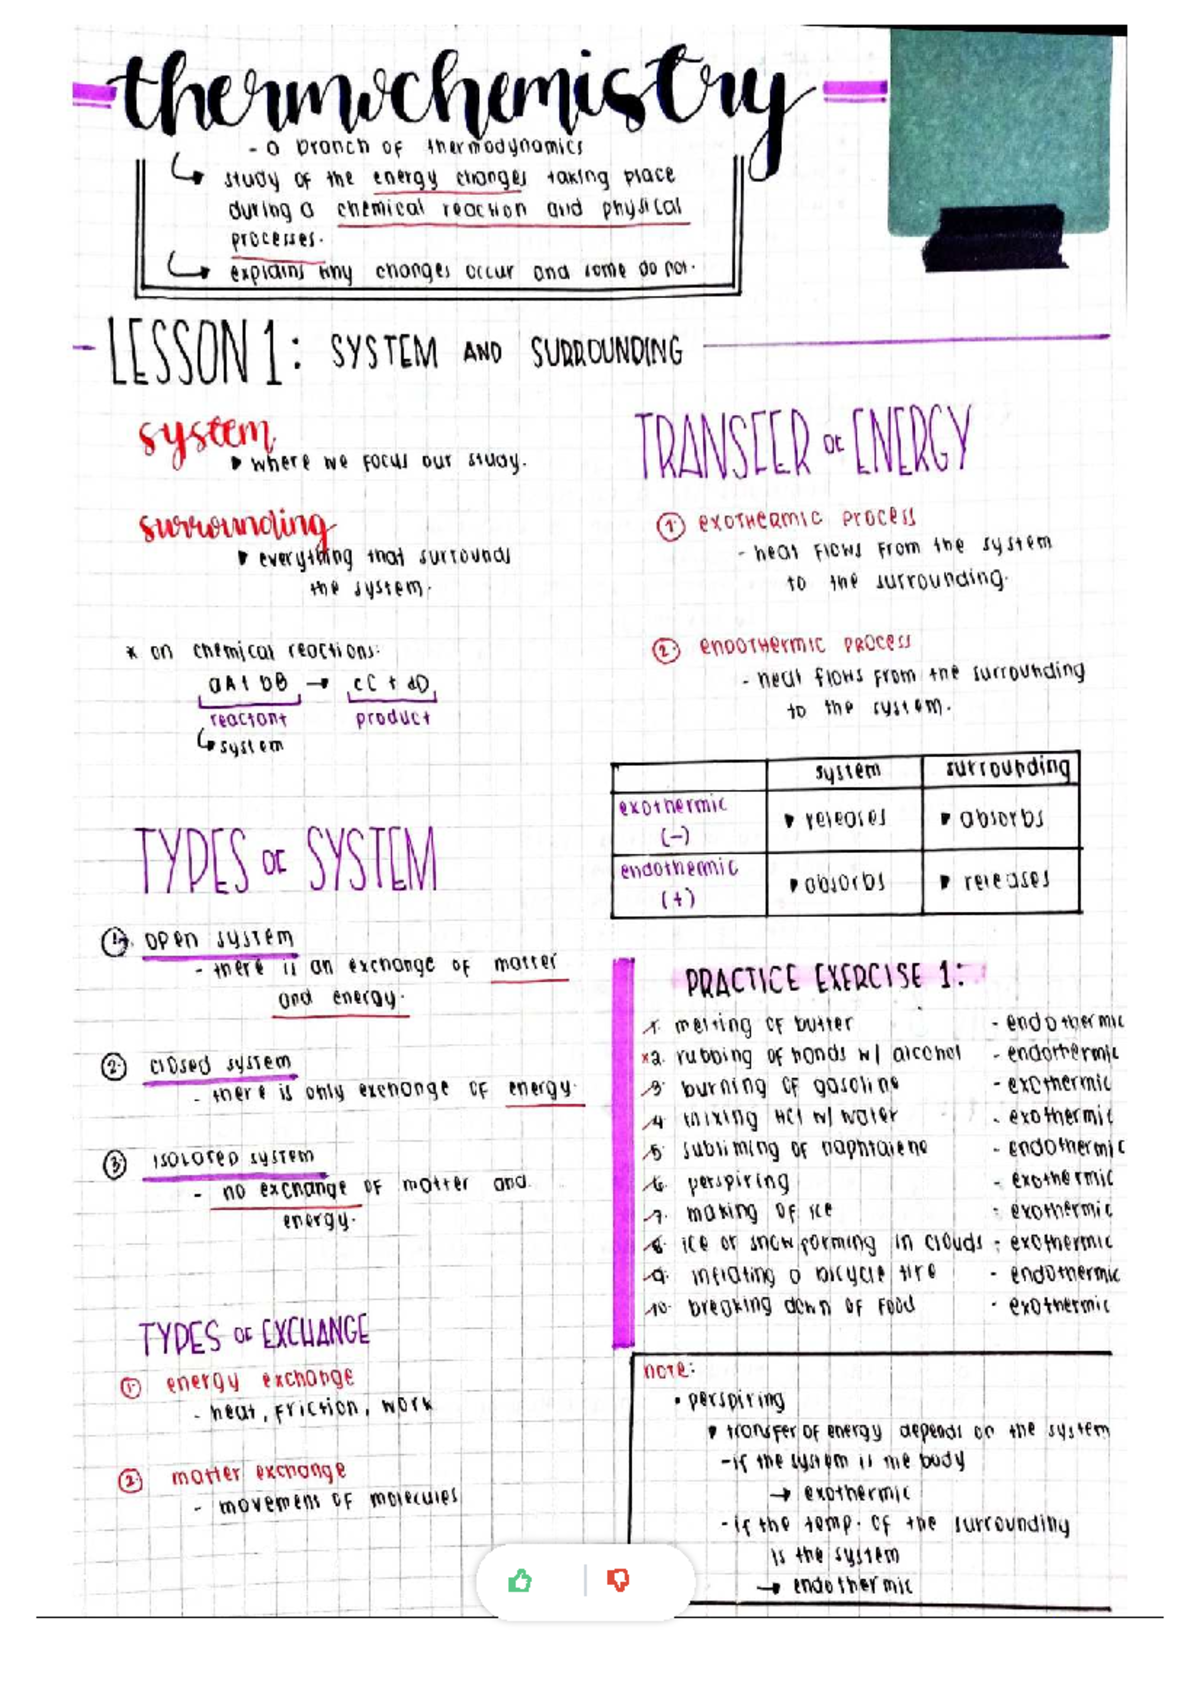 thermochemistry
- a branch of thermodynamics
study of the energy changes taking place
during a chemical reaction and physical
processes.
explains why changes occur and some do not.
LESSON 1: SYSTEM AND SURROUNDING
system
where we focus our study.
surrounding
everything that surrounds
the system.
* on chemical reactions:
aA + bB → cC + dD
reactant product
system
TYPES OF SYSTEM
1. open system
- there is an exchange of matter
and energy.
2. closed system
- there is only exchange of energy.
3. isolated system
- no exchange of matter and
energy.
TYPES OF EXCHANGE
1. energy exchange
- heat, friction, work
2. matter exchange
- movement of molecules
TRANSFER OF ENERGY
1. exothermic process
- heat flows from the system
to the surrounding.
2. endothermic process
- heat flows from the surrounding
to the system.
system surrounding
exothermic (-) releases absorbs
endothermic (+) absorbs releases
PRACTICE EXERCISE 1:
1. melting of butter - endothermic
x2. rubbing of hands w/ alcohol - endothermic
3. burning of gasoline - exothermic
4. mixing HCl w/ water - exothermic
5. subliming of naphtalene - endothermic
6. perspiring - exothermic
7. making of ice - exothermic
8. ice or snow forming in clouds - exothermic
9. inflating a bicycle tire - endothermic
10. breaking down of food - exothermic
note:
• perspiring
transfer of energy depends on the system
- if the system is the body
→ exothermic
- if the temp. of the surrounding
is the system
→ endothermic